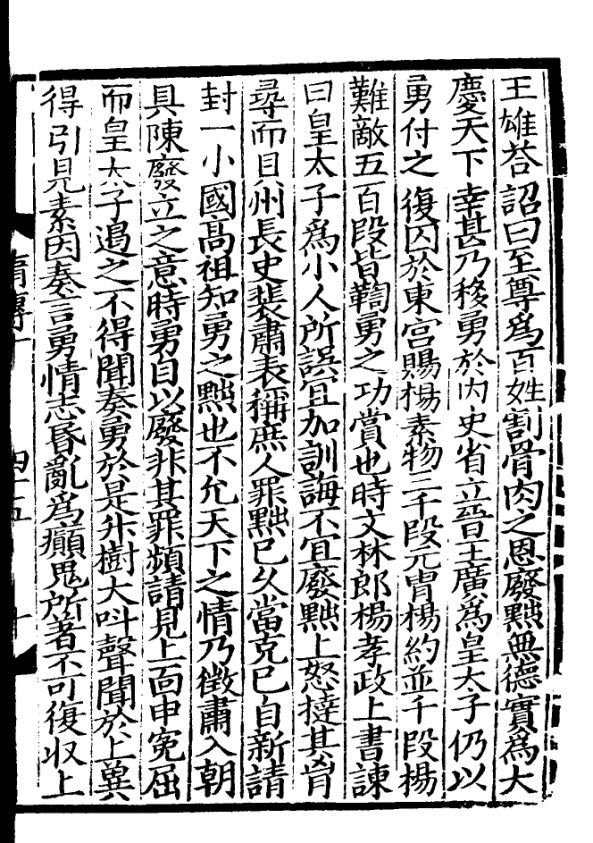 王雄荅詔曰至尊爲百姓割骨肉之恩廢黜無德實爲大
慶天下幸甚乃移勇於内史省立晉王廣爲皇太子仍以
勇付之復囚於東宮賜楊素物三千段元胄楊約並千段楊
難敵五百段皆鞫勇之功賞也時文林郎楊孝政上書諫
曰皇太子爲小人所誤宜加訓誨不宜廢黜上怒撻其胷
尋而貝州長史裴肅表稱庶人罪黜已久當克已自新請
封一小國高祖知勇之黜也不允天下之情乃徵肅入朝
具陳廢立之意時勇自以廢非其罪頻請見上面申寃屈
而皇太子遏之不得聞奏勇於是升樹大呌聲聞於上兾
得引見素因奏言勇情志昬亂爲癲鬼所著不可復収上
隋傳十 四十五